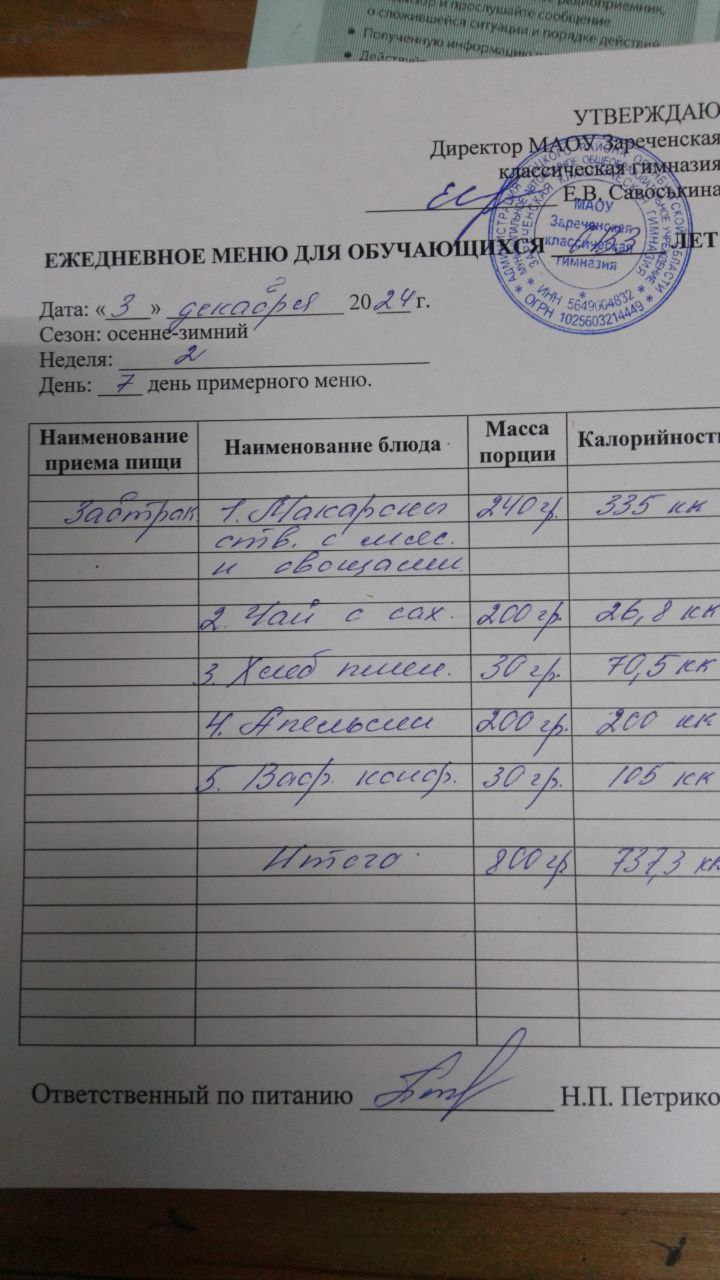 радиоприемник,
и прослушайте сообщение
о сложившейся ситуации и порядке действий
• Полученную информацию
УТВЕРЖДАЮ
Директор МАОУ Зареченская
классическая гимназия
Е.В. Савоськина
МАОУ
Зареченская
классическая
гимназия
* ИНН 5649004832 *
* ОГРН 1025603214449 *
ЕЖЕДНЕВНОЕ МЕНЮ ДЛЯ ОБУЧАЮЩИХСЯ ЛЕТ
Дата: «3» декабря 2024 г.
Сезон: осенне-зимний
Неделя: 2
День: 7 день примерного меню.
Наименование приема пищи Наименование блюда Масса порции Калорийность
Завтрак 1. Макароны 240 гр. 335 кк
отв. с мяс.
и овощами
2. Чай с сах. 200 гр. 26,8 кк
3. Хлеб пшен. 30 гр. 70,5 кк
4. Апельсин 200 гр. 200 кк
5. Ваф. конф. 30 гр. 105 кк
Итого 800 гр 737,3 кк
Ответственный по питанию Н.П. Петрико